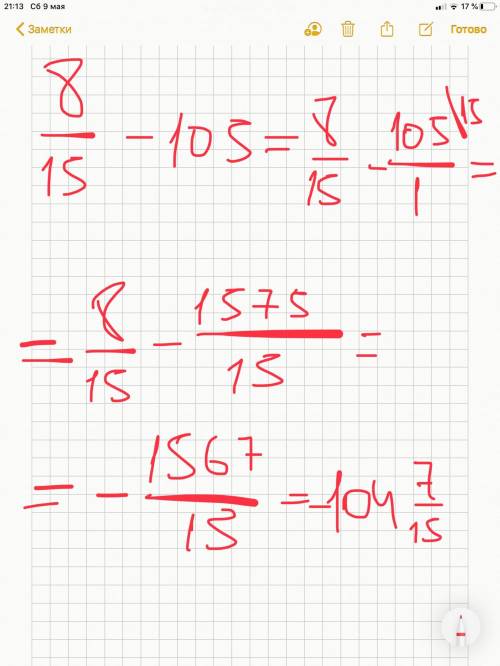 21:13 Сб 9 мая 17 %
Заметки Готово
8/15 - 105 = 8/15 - 105/1 \15 =
= 8/15 - 1575/15 =
= - 1567/15 = -104 7/15